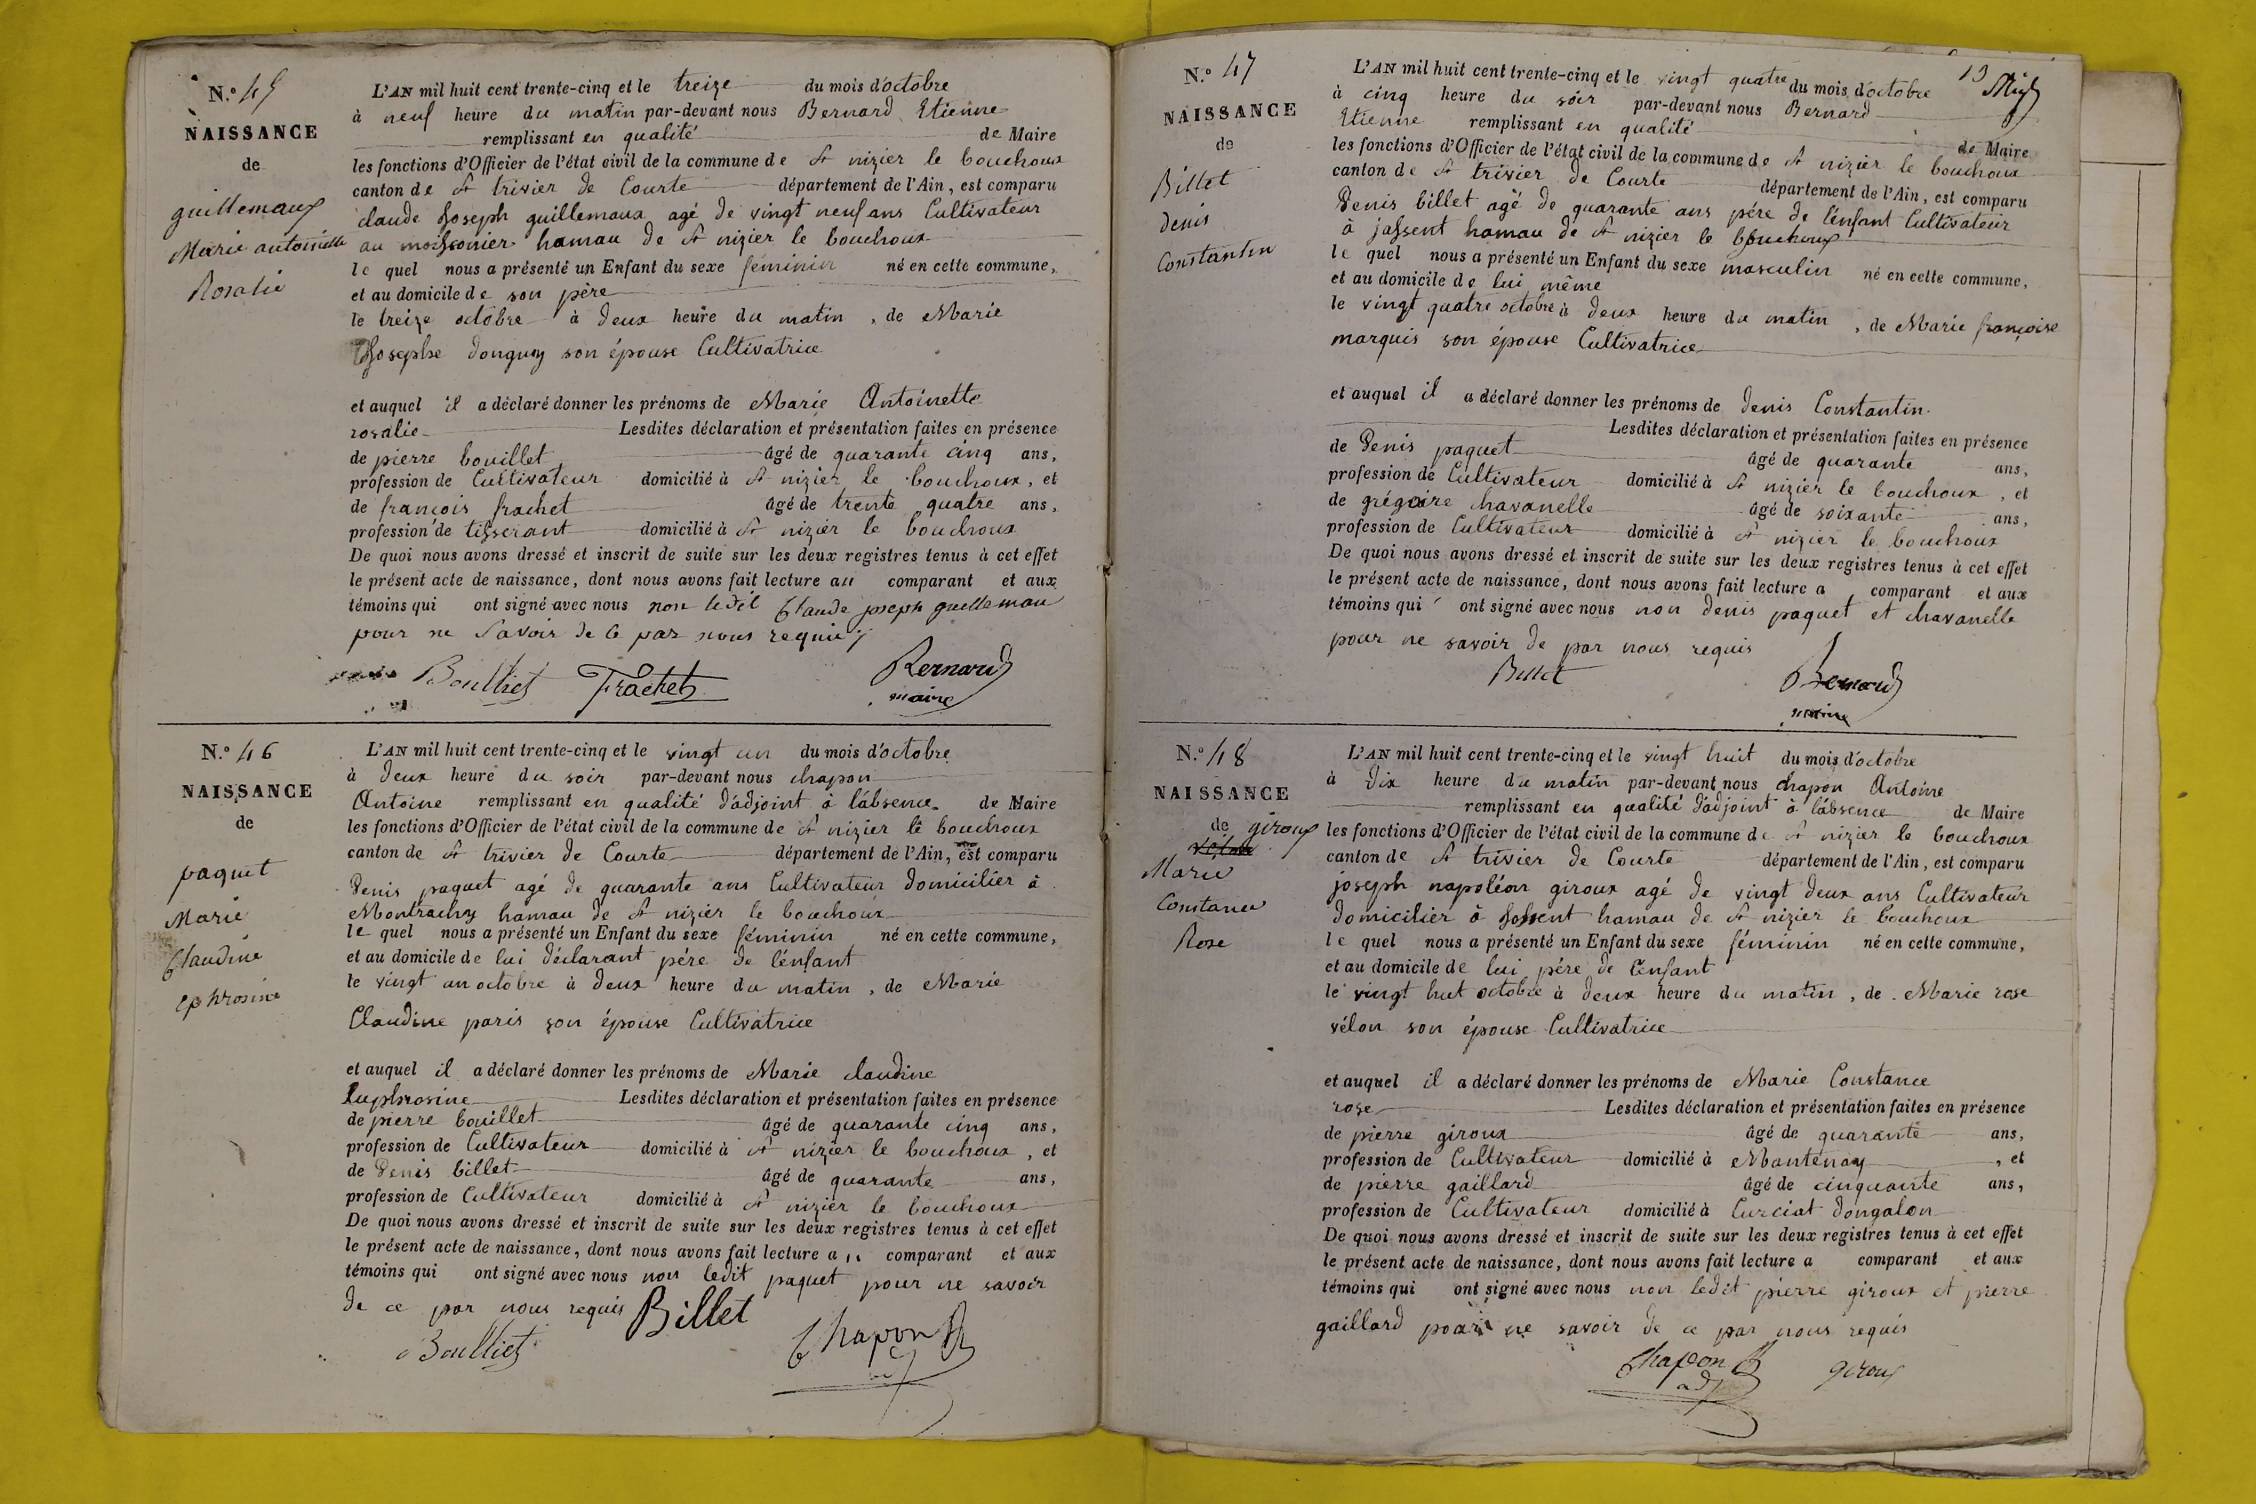 N.° 45
NAISSANCE
de
guillemaux
Marie antoinette
Rosalie
L'AN mil huit cent trente-cinq et le treize du mois d'octobre
à neuf heure du matin par-devant nous Bernard Etienne
remplissant en qualité de Maire
les fonctions d'Officier de l'état civil de la commune de st nizier le bouchoux
canton de st trivier de Courte département de l'Ain, est comparu
claude joseph guillemaux agé de vingt neuf ans Cultivateur
au moissonier hamau de st nizier le bouchoux
le quel nous a présenté un Enfant du sexe féminin né en cette commune,
et au domicile de son père
le treize octobre à deux heure du matin, de Marie
Josephe donguy son épouse Cultivatrice
et auquel il a déclaré donner les prénoms de Marie Antoinette
rosalie Lesdites déclaration et présentation faites en présence
de pierre bouillet âgé de quarante cinq ans,
profession de Cultivateur domicilié à st nizier le bouchoux, et
de françois frachet âgé de trente quatre ans,
profession de tisserant domicilié à st nizier le bouchoux
De quoi nous avons dressé et inscrit de suite sur les deux registres tenus à cet effet
le présent acte de naissance, dont nous avons fait lecture au comparant et aux
témoins qui ont signé avec nous non ledit Claude joseph guillemau
pour ne savoir de ce par nous requis
Boulliet Frachet Bernard
maire
N.° 46
NAISSANCE
de
paquet
Marie
Claudine
ephrosine
L'AN mil huit cent trente-cinq et le vingt un du mois d'octobre
à deux heure du soir par-devant nous chapon
Antoine remplissant en qualité d'adjoint à l'absence de Maire
les fonctions d'Officier de l'état civil de la commune de st nizier le bouchoux
canton de st trivier de Courte département de l'Ain, est comparu
Denis paquet agé de quarante ans Cultivateur domicilier à
Montrachy hamau de st nizier le bouchoux
le quel nous a présenté un Enfant du sexe féminin né en cette commune,
et au domicile de lui déclarant père de l'enfant
le vingt un octobre à deux heure du matin, de Marie
Claudine paris son épouse Cultivatrice
et auquel il a déclaré donner les prénoms de Marie claudine
Euphrosine Lesdites déclaration et présentation faites en présence
de pierre bouillet âgé de quarante cinq ans,
profession de Cultivateur domicilié à st nizier le bouchoux, et
de Denis billet âgé de quarante ans,
profession de Cultivateur domicilié à st nizier le bouchoux
De quoi nous avons dressé et inscrit de suite sur les deux registres tenus à cet effet
le présent acte de naissance, dont nous avons fait lecture au comparant et aux
témoins qui ont signé avec nous non ledit paquet pour ne savoir
de ce par nous requis Billet
Boulliet Chapon
N.° 47
NAISSANCE
de
Billet
denis
Constantin
13
L'AN mil huit cent trente-cinq et le vingt quatre du mois d'octobre
à cinq heure du soir par-devant nous Bernard
Etienne remplissant en qualité de Maire
les fonctions d'Officier de l'état civil de la commune de st nizier le bouchoux
canton de st trivier de Courte département de l'Ain, est comparu
Denis billet agé de quarante ans père de l'enfant Cultivateur
à jassent hamau de st nizier le bouchoux
le quel nous a présenté un Enfant du sexe masculin né en cette commune,
et au domicile de lui même
le vingt quatre octobre à deux heure du matin, de Marie françoise
marquis son épouse Cultivatrice
et auquel il a déclaré donner les prénoms de denis Constantin.
Lesdites déclaration et présentation faites en présence
de Denis paquet âgé de quarante ans,
profession de Cultivateur domicilié à st nizier le bouchoux, et
de grégoire chavanelle âgé de soixante ans,
profession de Cultivateur domicilié à st nizier le bouchoux
De quoi nous avons dressé et inscrit de suite sur les deux registres tenus à cet effet
le présent acte de naissance, dont nous avons fait lecture a comparant et aux
témoins qui ont signé avec nous non denis paquet et chavanelle
pour ne savoir de par nous requis
Billet Bernard
maire
N.° 48
NAISSANCE
de giroux
Marie
Constance
Rose
L'AN mil huit cent trente-cinq et le vingt huit du mois d'octobre
à dix heure du matin par-devant nous chapon Antoine
remplissant en qualité d'adjoint à l'absence de Maire
les fonctions d'Officier de l'état civil de la commune de st nizier le bouchoux
canton de st trivier de Courte département de l'Ain, est comparu
joseph napoléon giroux agé de vingt deux ans Cultivateur
domicilier à Jossent hamau de st nizier le bouchoux
le quel nous a présenté un Enfant du sexe féminin né en cette commune,
et au domicile de lui père de l'enfant
le vingt huit octobre à deux heure du matin, de Marie rose
vélon son épouse Cultivatrice
et auquel il a déclaré donner les prénoms de Marie Constance
rose Lesdites déclaration et présentation faites en présence
de pierre giroux âgé de quarante ans,
profession de Cultivateur domicilié à Mantenay, et
de pierre gaillard âgé de cinquante ans,
profession de Cultivateur domicilié à Curciat dongalon
De quoi nous avons dressé et inscrit de suite sur les deux registres tenus à cet effet
le présent acte de naissance, dont nous avons fait lecture a comparant et aux
témoins qui ont signé avec nous non ledit pierre giroux et pierre
gaillard pour ne savoir de ce par nous requis
Chapon giroux
adj